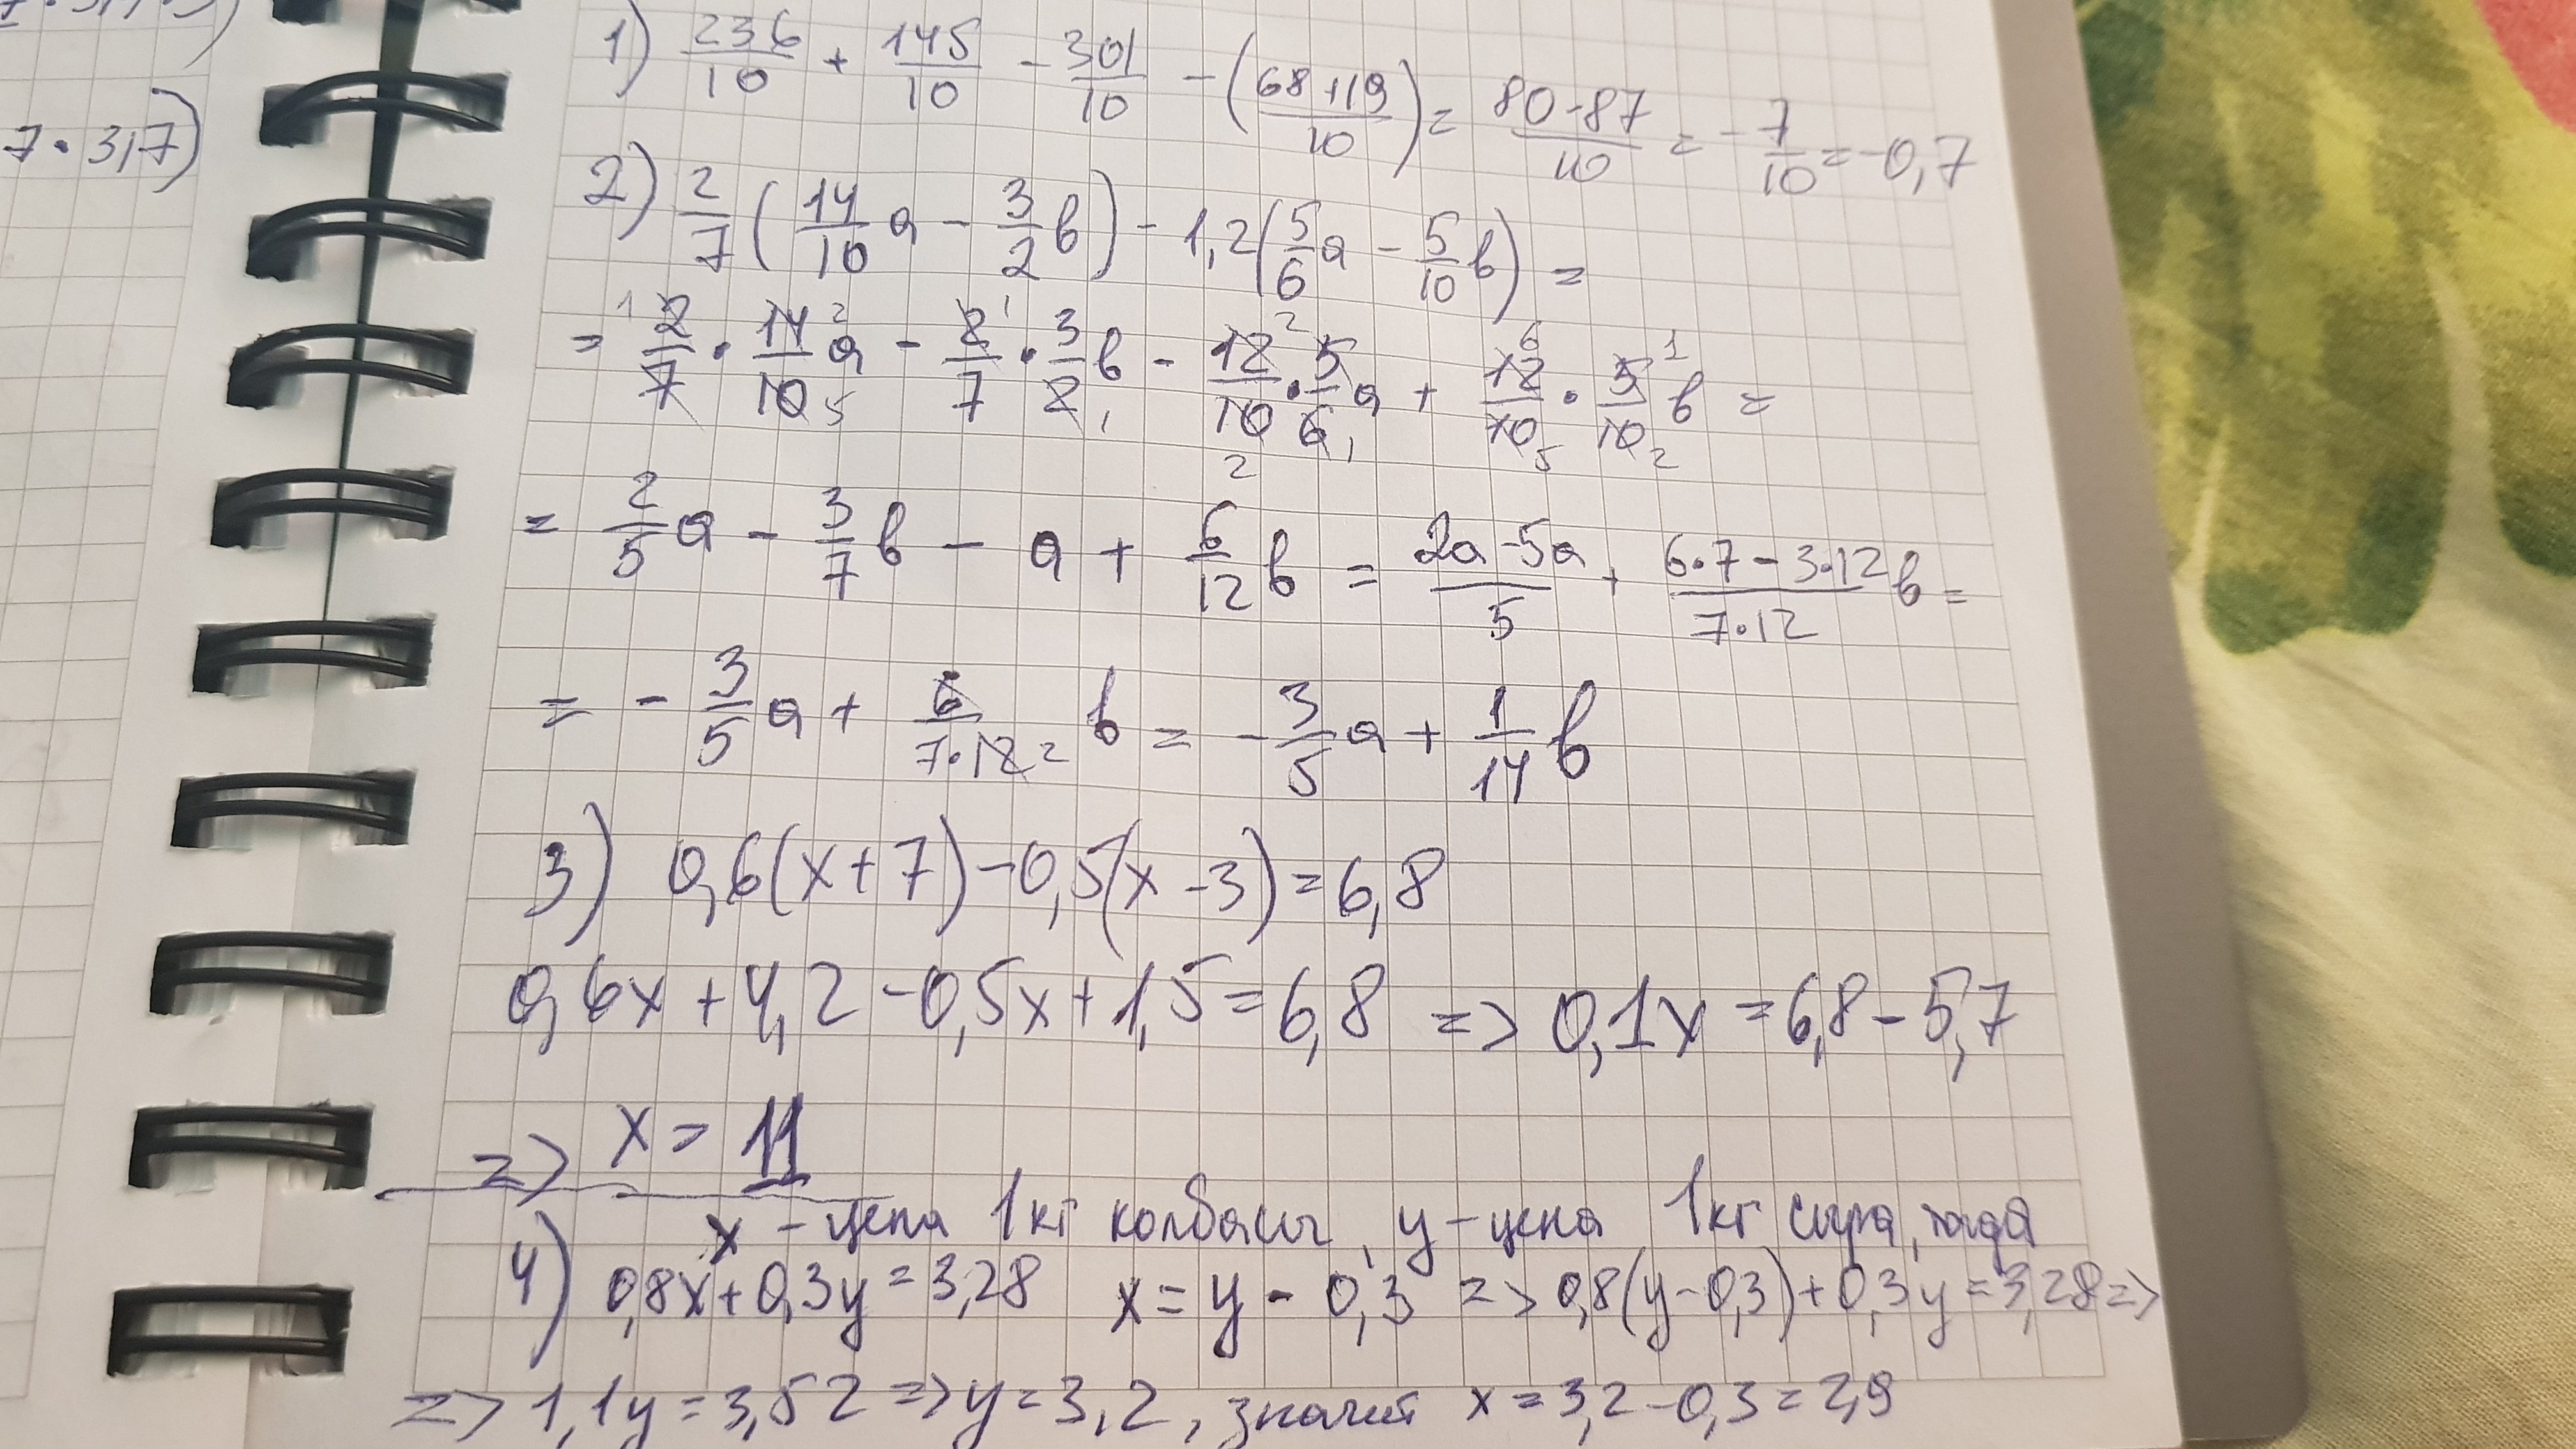 7·3,7)
1) 236/10 + 145/10 - 301/10 - (68+19/10) = 80-87/10 = -7/10 = -0,7
2) 2/7(14/10 a - 3/2 в) - 1,2(5/6 a - 5/10 в) =
= 2/7 · 14/10 a - 2/7 · 3/2 в - 12/10 · 5/6 a + 12/10 · 5/10 в =
= 2/5 a - 3/7 в - a + 6/12 в = 2a-5a/5 + 6·7-3·12/7·12 в =
= -3/5 a + 6/7·12 2 в = -3/5 a + 1/14 в
3) 0,6(x+7)-0,5(x-3)=6,8
0,6x+4,2-0,5x+1,5=6,8 => 0,1x=6,8-5,7
=> x=11
x - цена 1кг колбасы, y - цена 1кг сыра, тогда
4) 0,8x+0,3y=3,28 x=y-0,3 => 0,8(y-0,3)+0,3y=3,28=>
=> 1,1y=3,52=>y=3,2, значит x=3,2-0,3=2,9